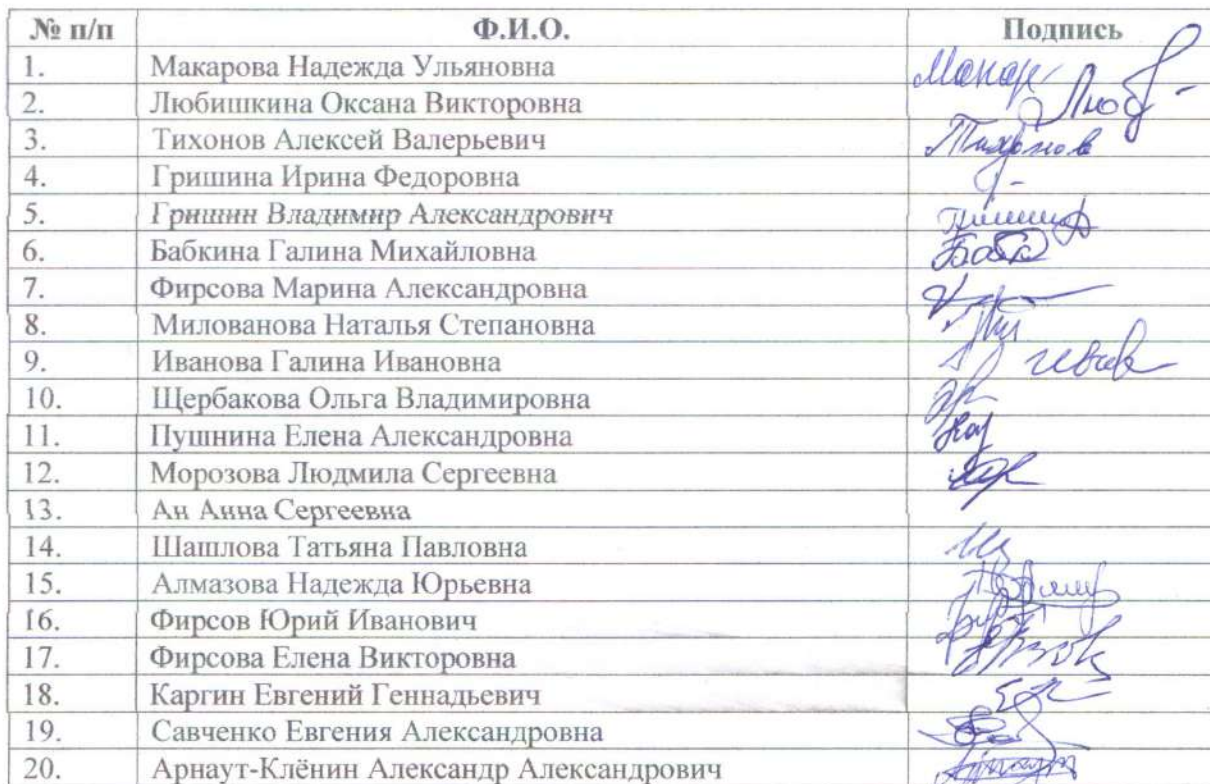 № п/п Ф.И.О. Подпись
1. Макарова Надежда Ульяновна Макар
2. Любишкина Оксана Викторовна Люб
3. Тихонов Алексей Валерьевич Тихонов
4. Гришина Ирина Федоровна
5. Гришин Владимир Александрович
6. Бабкина Галина Михайловна Баб
7. Фирсова Марина Александровна
8. Милованова Наталья Степановна
9. Иванова Галина Ивановна
10. Щербакова Ольга Владимировна
11. Пушнина Елена Александровна
12. Морозова Людмила Сергеевна
13. Ан Анна Сергеевна
14. Шашлова Татьяна Павловна
15. Алмазова Надежда Юрьевна
16. Фирсов Юрий Иванович
17. Фирсова Елена Викторовна
18. Каргин Евгений Геннадьевич
19. Савченко Евгения Александровна
20. Арнаут-Клёнин Александр Александрович